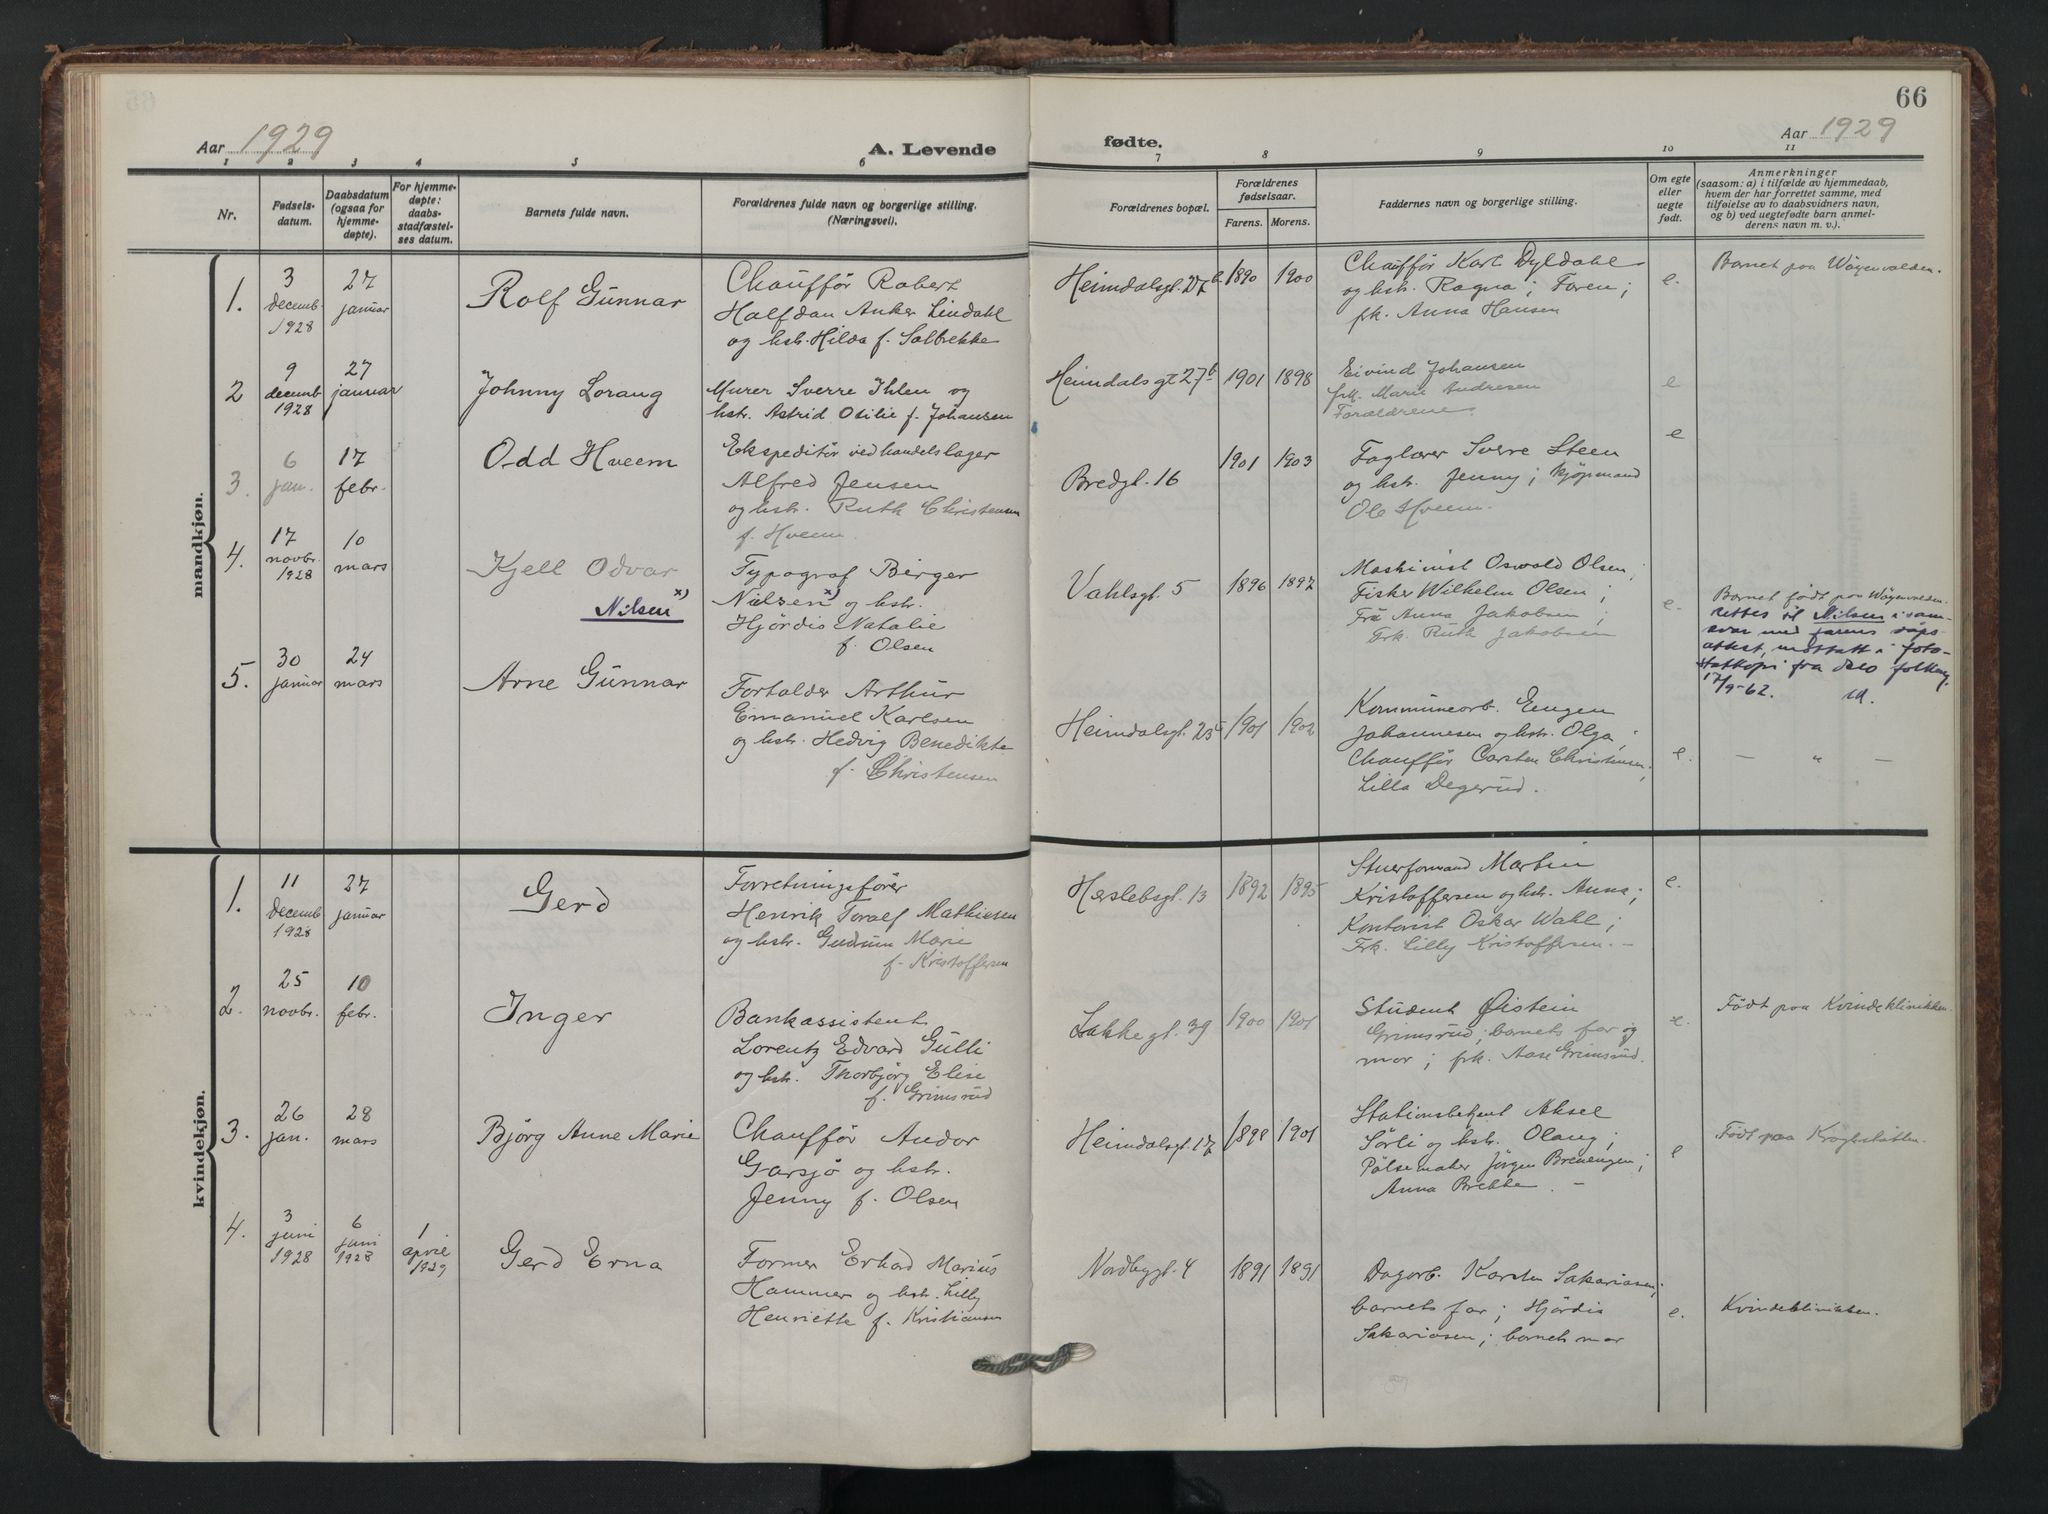 66
Aar 1929
A. Levende
fødte.
Aar 1929
1 2 3 4 5 6 7 8 9 10 11
Nr.
Fødsels-
datum.
Daabsdatum
(ogsaa for
hjemme-
døpte).
For hjemme-
døpte:
daabs-
stadfæstel-
ses datum.
Barnets fulde navn.
Forældrenes fulde navn og borgerlige stilling.
(Næringsvei).
Forældrenes bopæl.
Forældrenes
fødselsaar.
Farens. Morens.
Faddernes navn og borgerlige stilling.
Om egte
eller
uegte
født.
Anmerkninger
(saasom: a) i tilfælde av hjemmedaab,
hvem der har forrettet samme, med
tilføielse av to daabsvidners navn,
og b) ved uegtefødte barn anmel-
derens navn m. v.).
mandkjøn.
1.
3
decemb.
1928
27
januar
Rolf Gunnar
Chauffør Robert
Halfdan Anker Lindahl
og hstr. Hilda f. Solbrekke
Heimdalsgt. 27b
1890 1900
Chauffør Karl Dyldahl
og hstr. Ragna; Faren;
frk. Anna Hansen
e.
Barnet paa
2
9
decemb
1928
27
januar
Johnny Lorang
Murer Sverre Ihlen og
hstr. Astrid Otilie f. Johansen
Heimdalsgt 27b
1901 1898
Eivind Johansen
frk. Marie Andresen
Forældrene.
e
3.
6
jan.
17
febr.
Odd Hveem
Ekspeditør ved handelslager
Alfred Jensen
og hstr. Ruth Christensen
f. Hveem.
Bredgt. 16
1901 1903
Faglærer Sverre Steen
og hstr. Jenny; kjøpmand
Ole Hveem.
e
4.
17
novbr.
1928
10
mars
Kjell Odvar
Nilsen x)
Typograf Birger
Nielsen x) og hstr.
Hjördis Natalie
f. Olsen
Vahlsgt. 5
1896 1897
Maskinist Oswald Olsen;
Fisker Wilhelm Olsen;
Fru Anna Jakobsen;
Frk. Ruth Jakobsen
e.
Barnet født paa
rettes til Nilsen i sam-
svar med farens dåps-
attest, mottatt i foto-
statkopi fra Oslo folkereg.
17/9-62.
5.
30
januar
24
mars
Arne Gunnar
Forhalder Arthur
Emanuel Karlsen
og hstr. Hedvig Benedikte
f. Christensen
Heimdalsgt. 25
1901 1902
Kommunearb. Eugen
Johannesen og hstr. Olga;
Chauffør Carsten Christensen;
Lilla Degerud.
e.
— " —
kvindekjøn.
1.
11
decemb
1928
27
januar
Gerd
Forretningsfører
Henrik Toralf Mathiesen
og hstr. Gudrun Marie
f. Kristoffersen
Herslebsgt. 13
1892 1895
Stuerformand Martin
Kristoffersen og hstr. Anna;
Kontorist Oskar Wahl;
Frk. Lilly Kristoffersen. –
e.
2.
25
novbr.
10
febr.
Inger
Bankassistent
Lorentz Edvard Gulli
og hstr. Thorbjörg Elise
f. Grimsrud
Lakkegt. 39
1900 1901
Student Øistein
Grimsrud; barnets far og
mor; frk. Aase Grimsrud.
e.
Født paa Kvindeklinikken.
3.
26
jan.
28
mars
Björg Anne Marie
Chauffør Andor
Garsjö og hstr.
Jenny f. Olsen
Heimdalsgt. 17
1898 1901
Stationsbetjent Aksel
Sörli og hstr. Olaug;
Pölsemaker Jörgen Brenengen;
Anna Brekke. –
e
Født paa
4.
3
juni
1928
6
juni
1928
1
april
1929
Gerd Erna
Former Erhard Marius
Hammer og hstr. Lilly
Henriette f. Kristiansen
Nordbygt. 4
1891 1891
Dagarb. Karsten Sakariasen;
barnets far; Hjördis
Sakariasen; barnets mor
e.
Kvindeklinikken.